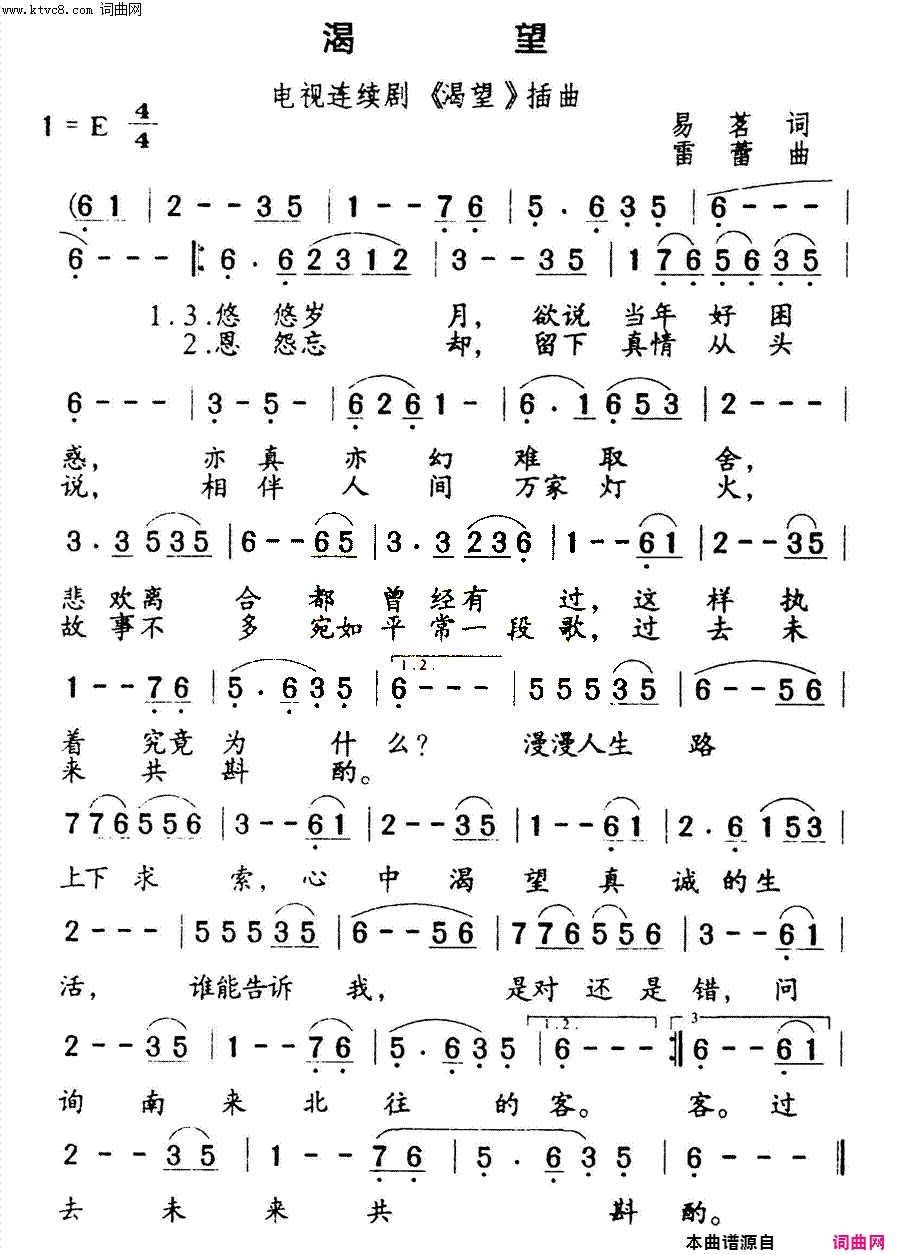 www.ktvc8.com 词曲网
渴 望
电视连续剧《渴望》插曲
1 = E 4/4
易茗 词
雷蕾 曲
(6 1 | 2 - - 3 5 | 1 - - 7 6 | 5 . 6 3 5 | 6 - - - |
6 - - - |: 6 . 6 2 3 1 2 | 3 - - 3 5 | 1 7 6 5 6 3 5 |
1.3.悠 悠岁 月， 欲说 当年 好 困
2.恩 怨忘 却， 留下 真情 从 头
6 - - - | 3 - 5 - | 6 2 6 1 - | 6 . 1 6 5 3 | 2 - - - |
惑， 亦 真 亦 幻 难 取 舍，
说， 相 伴 人 间 万家 灯 火，
3 . 3 5 3 5 | 6 - - 6 5 | 3 . 3 2 3 6 | 1 - - 6 1 | 2 - - 3 5 |
悲 欢离 合 都 曾 经有 过， 这 样 执
故 事不 多 宛如 平 常一 段 歌， 过 去 未
1 - - 7 6 | 5 . 6 3 5 | 1.2. 6 - - - | 5 5 5 3 5 | 6 - - 5 6 |
着 究竟 为 什 么？ 漫漫人生 路
来 共 斟 酌。
7 7 6 5 5 6 | 3 - - 6 1 | 2 - - 3 5 | 1 - - 6 1 | 2 . 6 1 5 3 |
上下 求 索， 心 中 渴 望 真 诚 的 生
2 - - - | 5 5 5 3 5 | 6 - - 5 6 | 7 7 6 5 5 6 | 3 - - 6 1 |
活， 谁能告诉 我， 是对 还 是 错， 问
2 - - 3 5 | 1 - - 7 6 | 5 . 6 3 5 | 1.2. 6 - - - :| 3 6 - - 6 1 |
询 南 来 北 往 的 客。 客。 过
2 - - 3 5 | 1 - - 7 6 | 5 . 6 3 5 | 6 - - - ‖
去 未 来 共 斟 酌。
本曲谱源自 词曲网